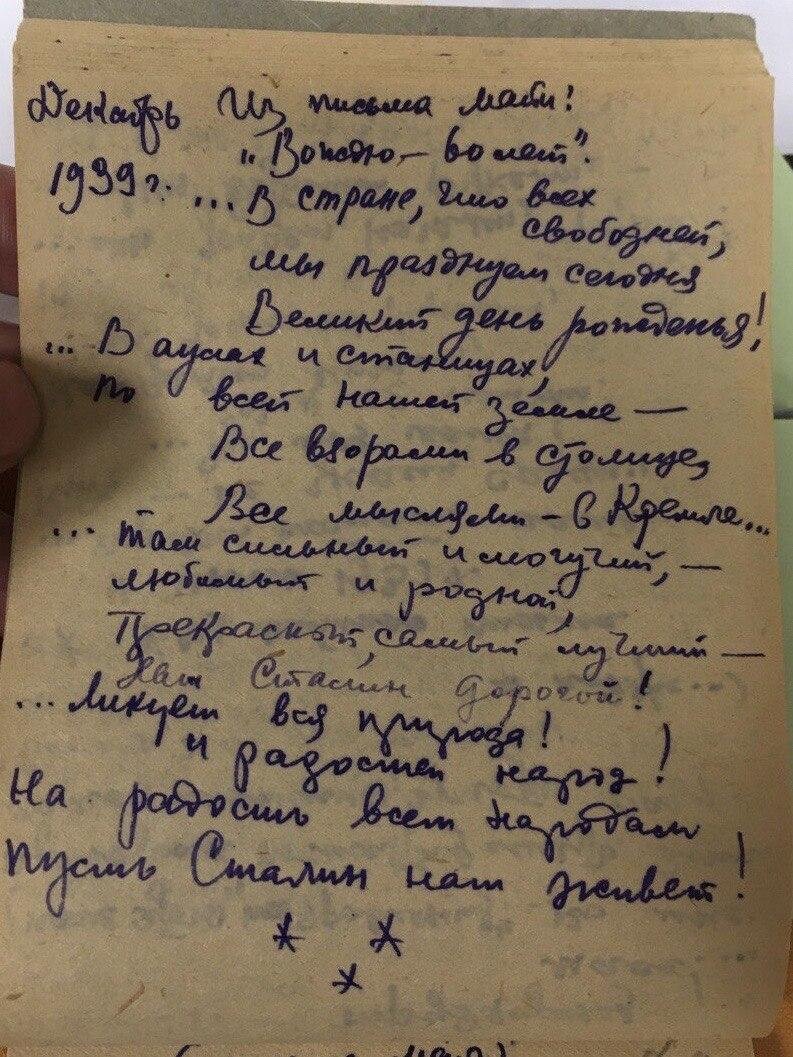 Декабрь Из письма мамы!
1939 г. „Вождю – 60 лет".
... В стране, что всех
свободней,
мы празднуем сегодня
Великий день рожденья!
... В аулах и станицах,
по всей нашей земле —
Все взорами в столице,
Все мыслями – в Кремле...
... там сильный и могучий, —
любимый и родной,
Прекрасный, самый лучший —
Наш Сталин дорогой!
... Ликует вся природа!
и радостен народ!
На радость всем народам
пусть Сталин наш живет!
* *
*